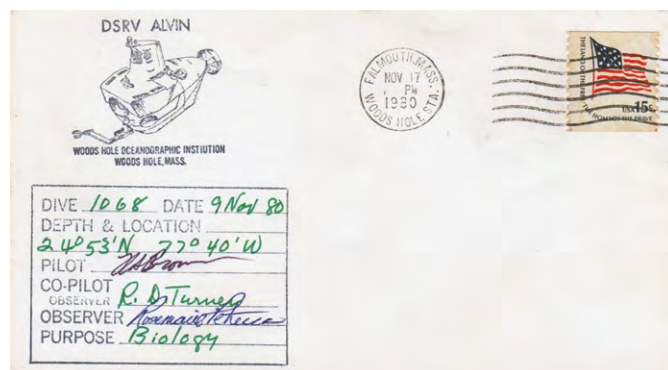 DSRV ALVIN
WOODS HOLE OCEANOGRAPHIC INSTIUTION
WOODS HOLE, MASS.
FALMOUTH, MASS.
NOV 17
PM
1980
WOODS HOLE STA.
THE LAND OF THE FREE
USA 15c
THE HOME OF THE BRAVE
DIVE 1068 DATE 9 Nov 80
DEPTH & LOCATION
24°53'N 77°40'W
PILOT
CO-PILOT
OBSERVER R. D. Turner
OBSERVER Rosemarie
PURPOSE Biology